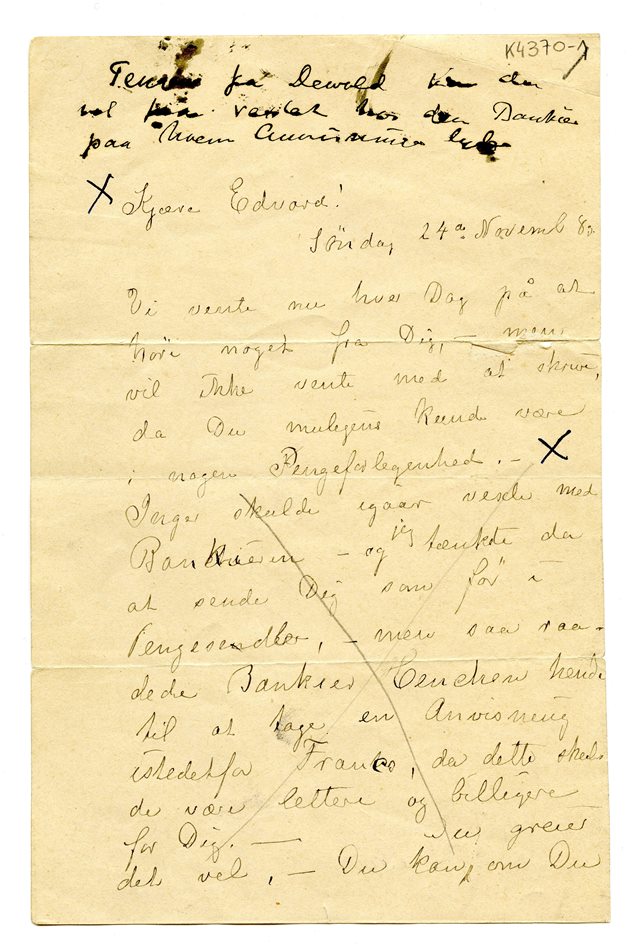 K4370-1
paa Dewold kan du
vel faa vexlet hos den Bankier
paa hvem Anvisningen lyder
X Kjære Edvard!
Söndag 24de Novemb 89.
Vi vente nu hver Dag på at
höre noget fra Dig, – men
vil ikke vente med at skrive,
da Du muligens kunde være
i nogen Pengeforlegenhed. – X
Inger skulde igaar vexle med
Bankieren – og jeg tænkte da
at sende Dig som för i
Pengesedler, – men saa raa-
dede Bankier Henchen hende
til at tage en Anvisning
istedetfor Francs, da dette skul-
de være lettere og billigere
for Dig. – Du greier
det vel, – Du kan, om Du